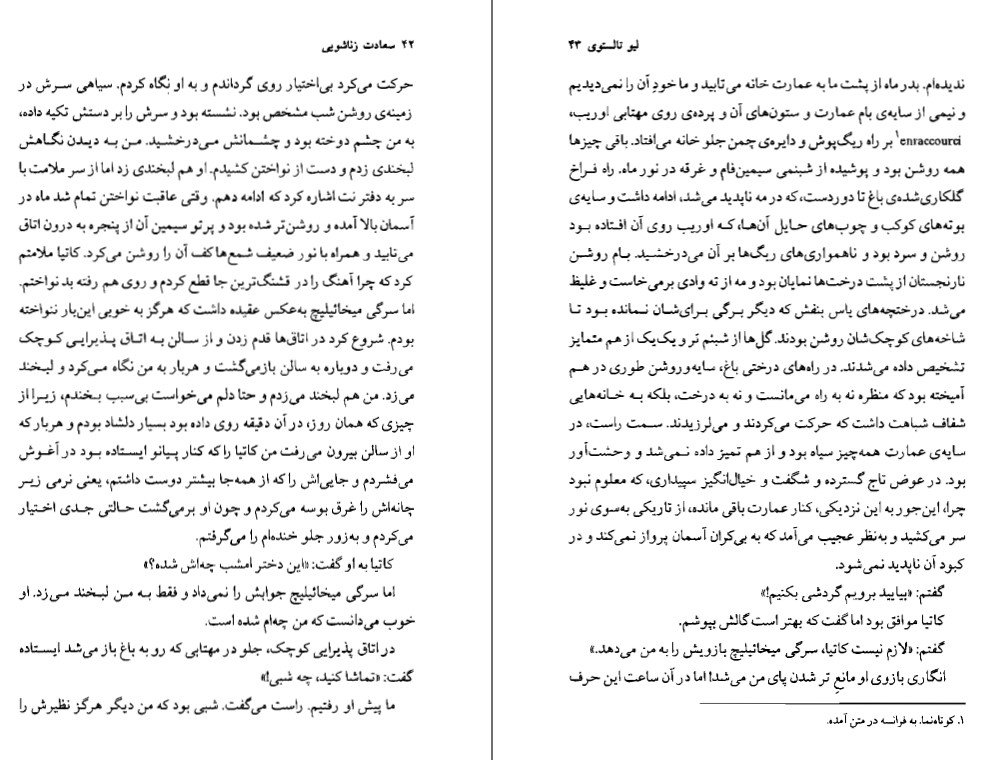 ۴۲ سعادت زناشویی
حرکت می‌کرد بی‌اختیار روی گرداندم و به او نگاه کردم. سیاهی سرش در
زمینه‌ی روشن شب مشخص بود. نشسته بود و سرش را بر دستش تکیه داده،
به من چشم دوخته بود و چشمانش می‌درخشید. من به دیدن نگاهش
لبخندی زدم و دست از نواختن کشیدم. او هم لبخندی زد اما از سر ملامت با
سر به دفتر نت اشاره کرد که ادامه دهم. وقتی عاقبت نواختن تمام شد ماه در
آسمان بالا آمده و روشن‌تر شده بود و پرتو سیمین آن از پنجره به درون اتاق
می‌تابید و همراه با نور ضعیف شمع‌ها کف آن را روشن می‌کرد. کاتیا ملامتم
کرد که چرا آهنگ را در قشنگ‌ترین جا قطع کردم و روی هم رفته بد نواختم.
اما سرگی میخائیلیچ به‌عکس عقیده داشت که هرگز به خوبی این‌بار ننواخته
بودم. شروع کرد در اتاق‌ها قدم زدن و از سالن به اتاق پذیرایی کوچک
می‌رفت و دوباره به سالن بازمی‌گشت و هربار به من نگاه می‌کرد و لبخند
می‌زد. من هم لبخند می‌زدم و حتا دلم می‌خواست بی‌سبب بخندم، زیرا از
چیزی که همان روز، در آن دقیقه روی داده بود بسیار دلشاد بودم و هربار که
او از سالن بیرون می‌رفت من کاتیا را که کنار پیانو ایستاده بود در آغوش
می‌فشردم و جایی‌اش را که از همه‌جا بیشتر دوست داشتم، یعنی نرمی زیر
چانه‌اش را غرق بوسه می‌کردم و چون او برمی‌گشت حالتی جدی اختیار
می‌کردم و به‌زور جلو خنده‌ام را می‌گرفتم.
کاتیا به او گفت: «این دختر امشب چه‌اش شده؟»
اما سرگی میخائیلیچ جوابش را نمی‌داد و فقط به من لبخند می‌زد. او
خوب می‌دانست که من چه‌ام شده است.
در اتاق پذیرایی کوچک، جلو در مهتابی که رو به باغ باز می‌شد ایستاده
گفت: «تماشا کنید، چه شبی!»
ما پیش او رفتیم. راست می‌گفت. شبی بود که من دیگر هرگز نظیرش را
لیو تالستوی ۴۳
ندیده‌ام. بدر ماه از پشت ما به عمارت خانه می‌تابید و ما خودِ آن را نمی‌دیدیم
و نیمی از سایه‌ی بام عمارت و ستون‌های آن و پرده‌ی روی مهتابی اوریب،
enraccourci۱ بر راه ریگ‌پوش و دایره‌ی چمن جلو خانه می‌افتاد. باقی چیزها
همه روشن بود و پوشیده از شبنمی سیمین‌فام و غرقه در نور ماه. راه فراخ
گلکاری‌شده‌ی باغ تا دوردست، که در مه ناپدید می‌شد، ادامه داشت و سایه‌ی
بوته‌های کوکب و چوب‌های حایل آن‌ها، که اوریب روی آن افتاده بود
روشن و سرد بود و ناهمواری‌های ریگ‌ها بر آن می‌درخشید. بام روشن
نارنجستان از پشت درخت‌ها نمایان بود و مه از ته وادی برمی‌خاست و غلیظ
می‌شد. درختچه‌های یاس بنفش که دیگر برگی برای‌شان نمانده بود تا
شاخه‌های کوچک‌شان روشن بودند. گل‌ها از شبنم تر و یک‌یک از هم متمایز
تشخیص داده می‌شدند. در راه‌های درختی باغ، سایه‌وروشن طوری در هم
آمیخته بود که منظره نه به راه می‌مانست و نه به درخت، بلکه به خانه‌هایی
شفاف شباهت داشت که حرکت می‌کردند و می‌لرزیدند. سمت راست، در
سایه‌ی عمارت همه‌چیز سیاه بود و از هم تمیز داده نمی‌شد و وحشت‌آور
بود. در عوض تاج گسترده و شگفت و خیال‌انگیز سپیداری، که معلوم نبود
چرا، این‌جور به این نزدیکی، کنار عمارت باقی مانده، از تاریکی به‌سوی نور
سر می‌کشید و به‌نظر عجیب می‌آمد که به بی‌کران آسمان پرواز نمی‌کند و در
کبود آن ناپدید نمی‌شود.
گفتم: «بیایید برویم گردشی بکنیم!»
کاتیا موافق بود اما گفت که بهتر است گالش بپوشم.
گفتم: «لازم نیست کاتیا، سرگی میخائیلیچ بازویش را به من می‌دهد.»
انگاری بازوی او مانعِ تر شدن پای من می‌شد! اما در آن ساعت این حرف
۱. کوتاه‌نما. به فرانسه در متن آمده.